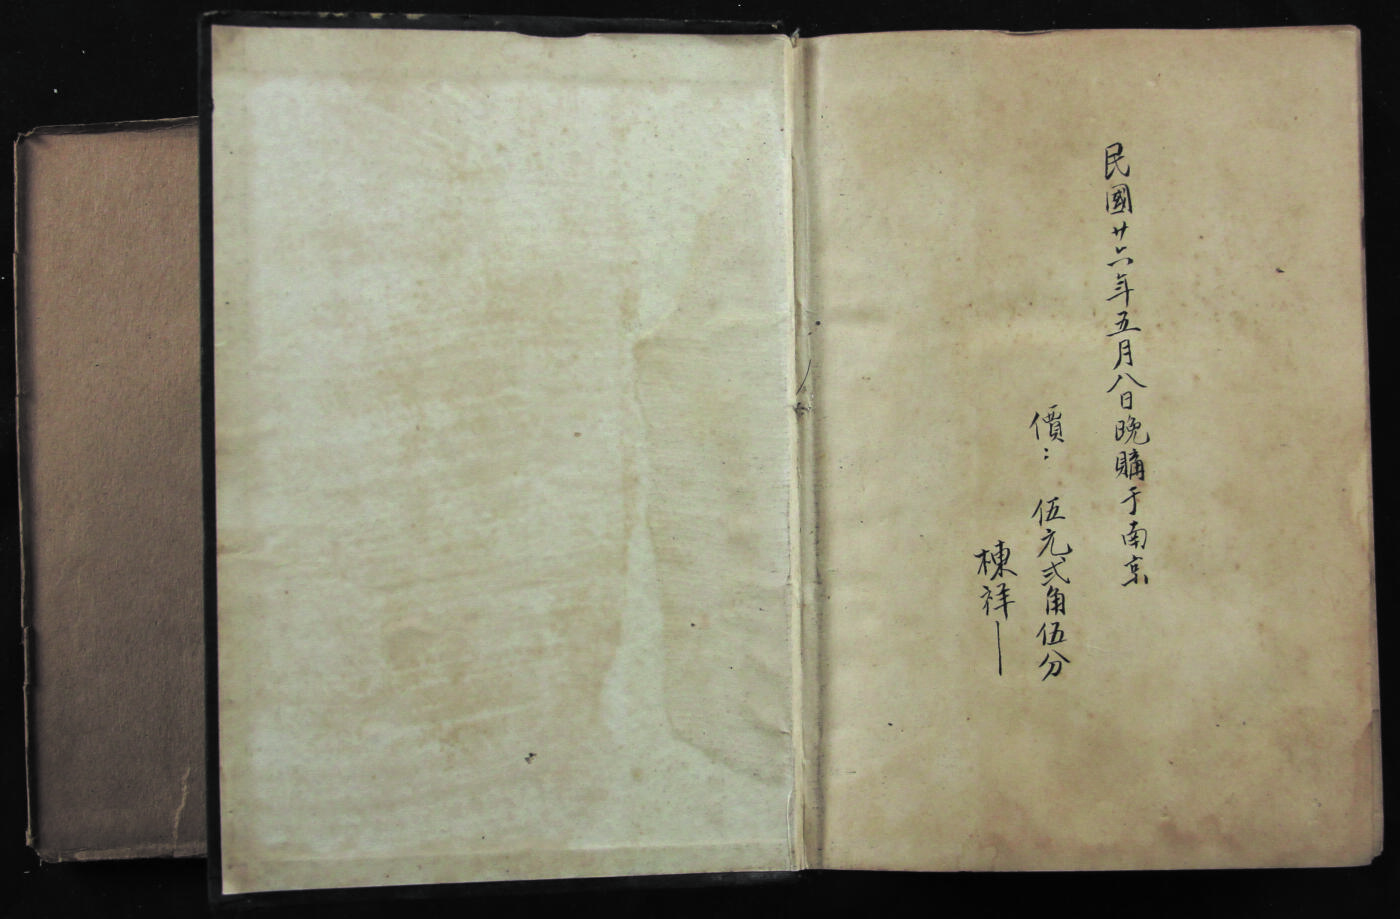 民國廿六年五月八日晚購于南京
價：伍元弍角伍分
棟祥